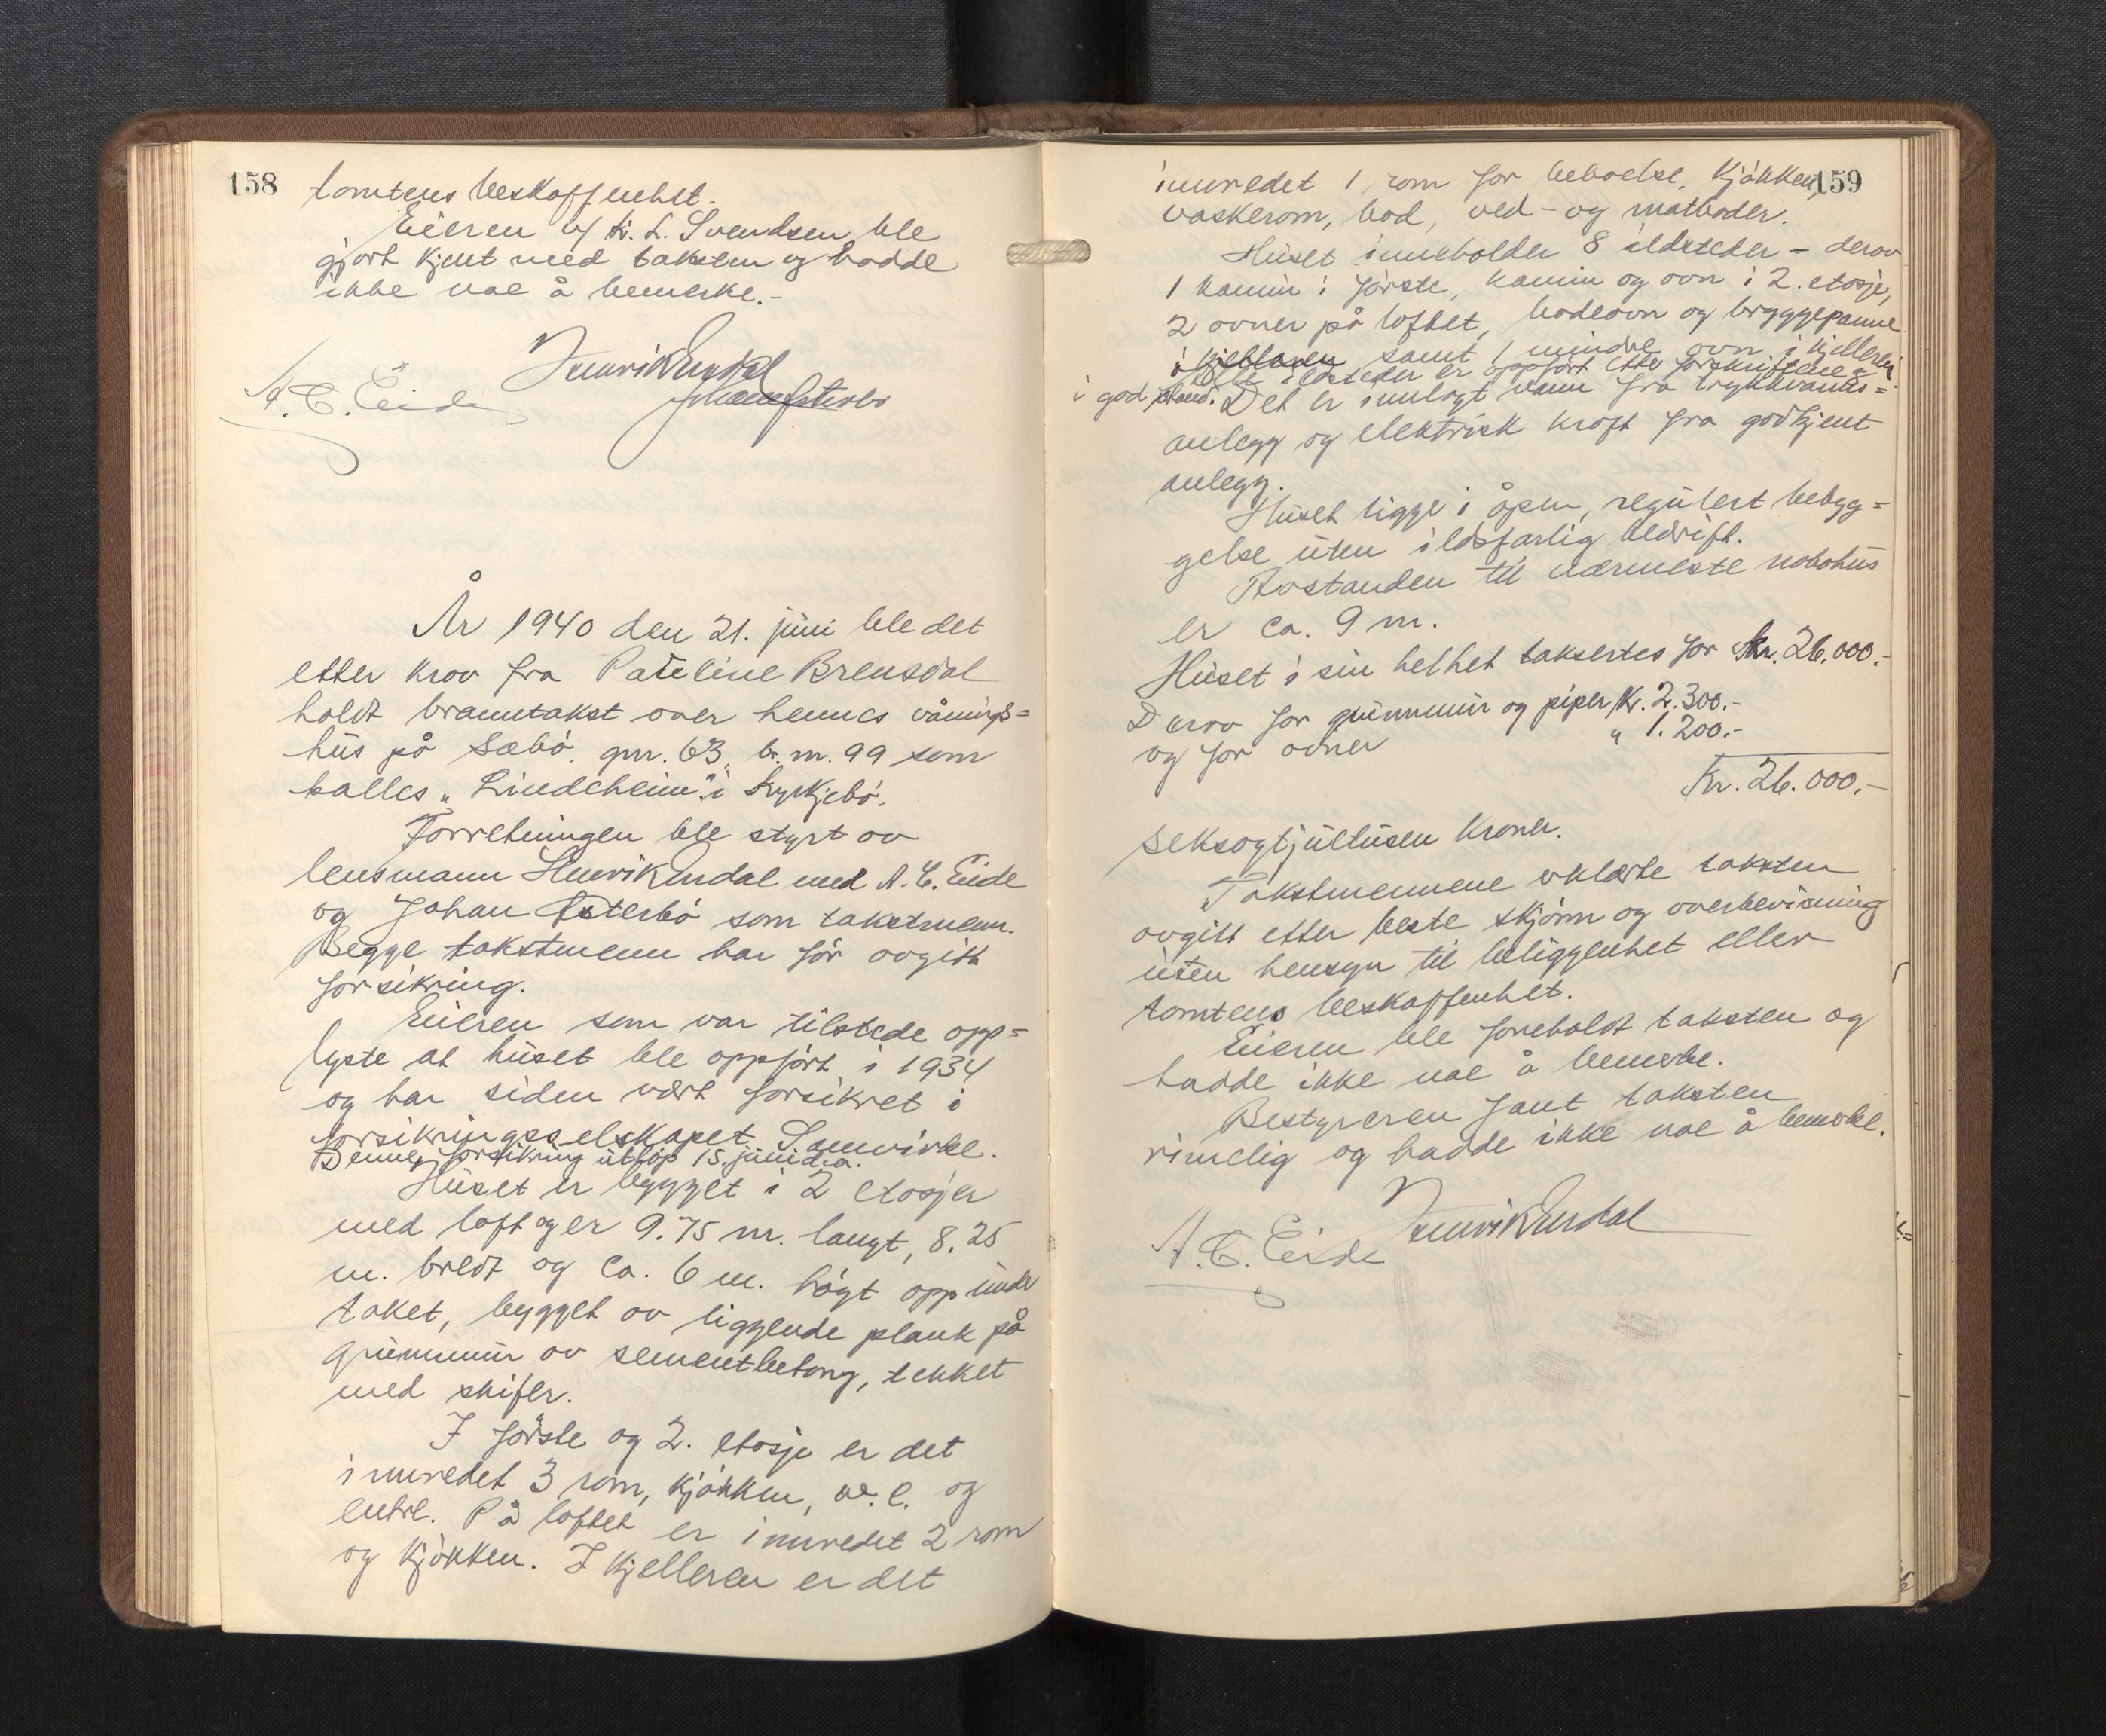 158
tomtens beskaffenhet.
Eieren v/ L. Svendsen ble
gjort kjent med taksten og hadde
ikke noe å bemerke.-
Henrik Endal
A. C. Eide
Johan Østerbø
År 1940 den 21. juni ble det
etter krav fra Pauline Brensdal
holdt branntakst over hennes vånings=
hus på Sæbø gnr. 63, br. nr. 99 som
kalles „Lindeheim" i Kyrkjebø.
Forretningen ble styrt av
lensmann Henrik Endal med A. C. Eide
og Johan Østerbø som takstmenn.
Begge takstmenn har før avgitt
forsikring.
Eieren som var tilstede opp=
lyste at huset ble oppført i 1934
og har siden vært forsikret i
forsikringsselskapet Samvirke.
Denne forsikring utløp 15. juni d.a.
Huset er bygget i 2 etasjer
med loft og er 9.75 m. langt, 8.25
m. bredt og ca. 6 m. høgt opp under
taket, bygget av liggende plank på
grunnmur av sementbetong, tekket
med skifer.
I første og 2. etasje er det
innredet 3 rom, kjøkken, w.c. og
entre. På loftet er innredet 2 rom
og kjøkken. I kjelleren er det
159
innredet 1 rom for beboelse, kjøkken,
vaskerom, bad, ved- og matboder.
Huset inneholder 8 ildsteder - derav
1 kamin i første, kamin og ovn i 2. etasje,
2 ovner på loftet, badeovn og bryggepanne
i kjelleren samt 1 mindre ovn i kjelleren.
Alle ildsteder er oppført etter forskriftene -
i god stand. Det er innlagt vann fra trykkvanns=
anlegg og elektrisk kraft fra godkjent
anlegg.
Huset ligger i åpen, regulert bebyg=
gelse uten ildsfarlig bedrift.
Avstanden til nærmeste nabohus
er ca. 9 m.
Huset i sin helhet takseres for kr. 26.000.-
Derav for grunnmur og piper kr. 2.300.-
og for ovner „ 1.200.-
Kr. 26.000.-
seksogtjuetusen kroner.
Takstmennene erklærte taksten
avgitt etter beste skjønn og overbevisning
uten hensyn til beliggenhet eller
tomtens beskaffenhet.
Eieren ble foreholdt taksten og
hadde ikke noe å bemerke.
Bestyreren fant taksten
rimelig og hadde ikke noe å bemerke.
Henrik Endal
A. C. Eide